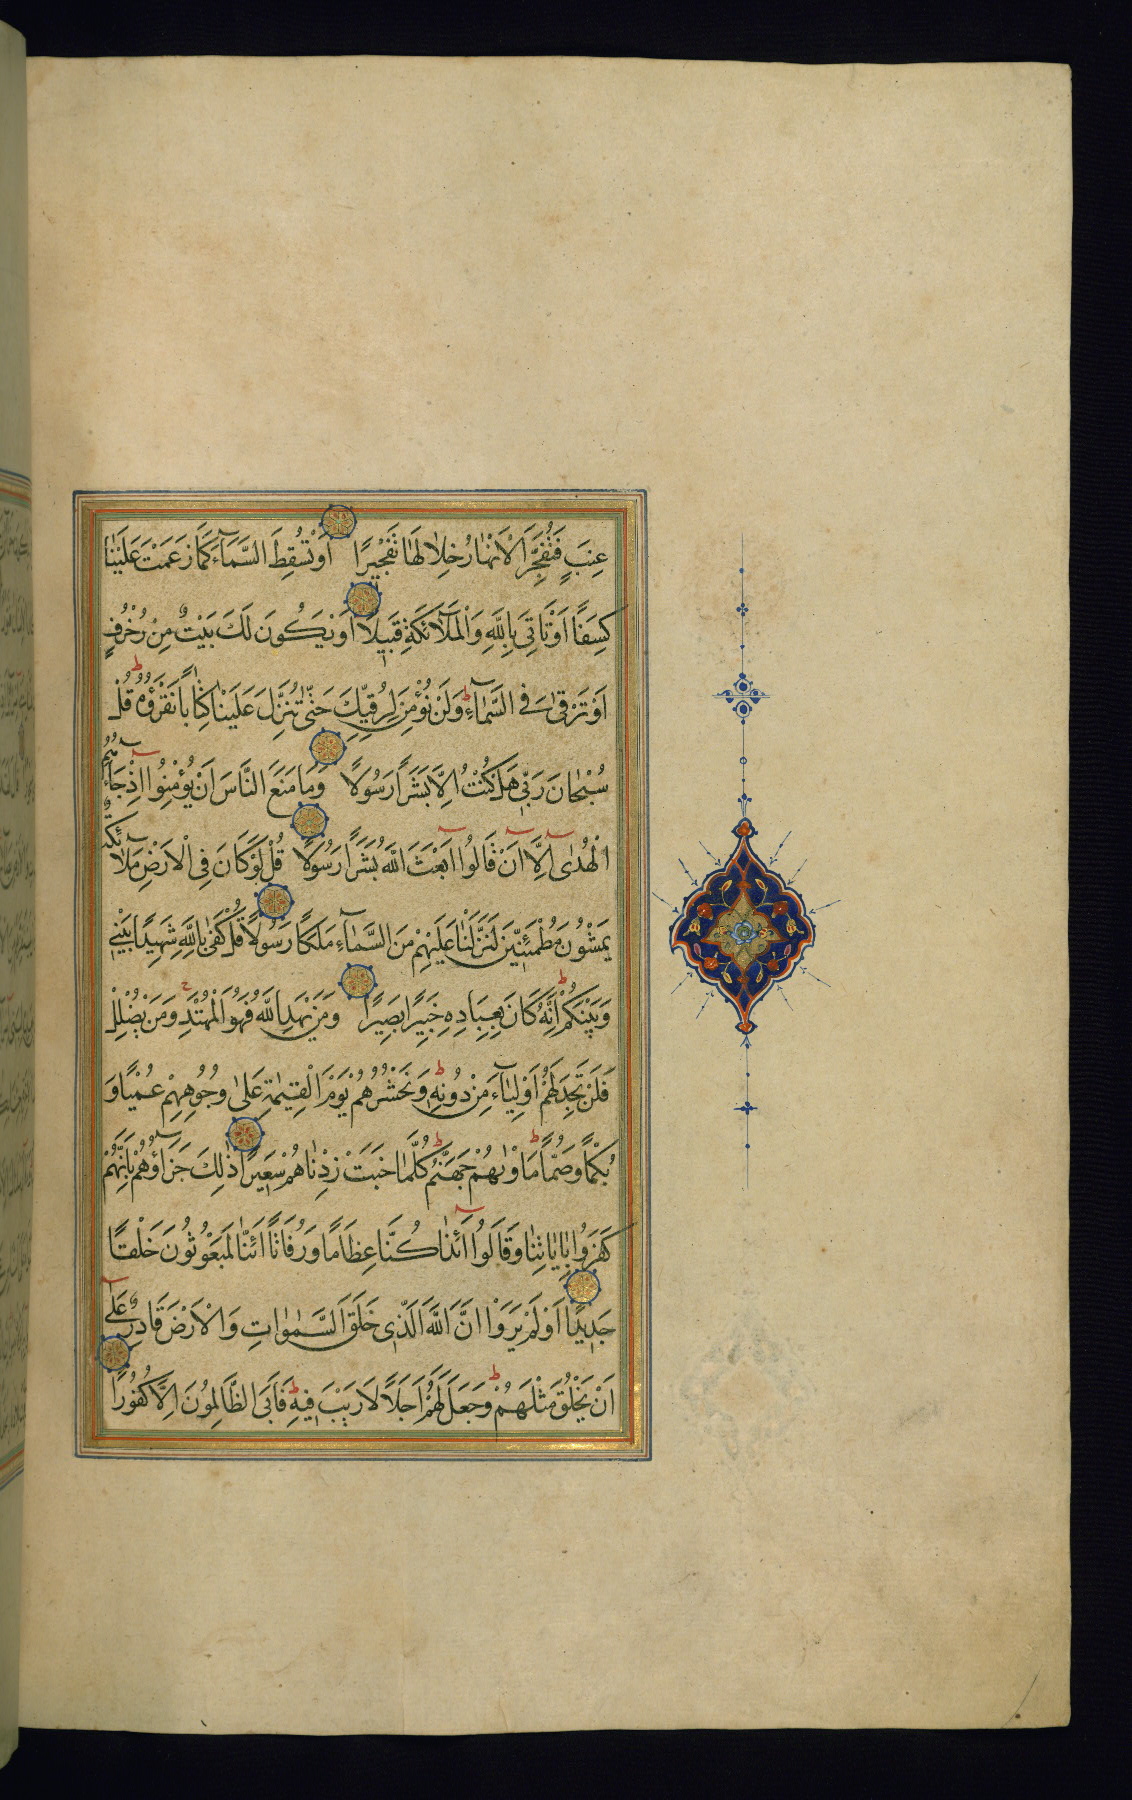 عِنَبٍ فَتُفَجِّرَ الْاَنْهَارَ خِلَالَهَا تَفْجِيرًا اَوْ تُسْقِطَ السَّمَآءَ كَمَا زَعَمْتَ عَلَيْنَا
كِسَفًا اَوْ تَاْتِيَ بِاللَّهِ وَالْمَلَآئِكَةِ قَبِيلًا اَوْ يَكُونَ لَكَ بَيْتٌ مِنْ زُخْرُفٍ
اَوْ تَرْقٰى فِي السَّمَآءِ وَلَنْ نُؤْمِنَ لِرُقِيِّكَ حَتّٰى تُنَزِّلَ عَلَيْنَا كِتَابًا نَقْرَؤُهُ قُلْ
سُبْحَانَ رَبِّي هَلْ كُنْتُ اِلَّا بَشَرًا رَسُولًا وَمَا مَنَعَ النَّاسَ اَنْ يُؤْمِنُوا اِذْ جَآءَهُمُ
الْهُدٰى اِلَّا اَنْ قَالُوا اَبَعَثَ اللَّهُ بَشَرًا رَسُولًا قُلْ لَوْ كَانَ فِي الْاَرْضِ مَلَآئِكَةٌ
يَمْشُونَ مُطْمَئِنِّينَ لَنَزَّلْنَا عَلَيْهِمْ مِنَ السَّمَآءِ مَلَكًا رَسُولًا قُلْ كَفٰى بِاللَّهِ شَهِيدًا بَيْنِي
وَبَيْنَكُمْ اِنَّهُ كَانَ بِعِبَادِهِ خَبِيرًا بَصِيرًا وَمَنْ يَهْدِ اللَّهُ فَهُوَ الْمُهْتَدِ وَمَنْ يُضْلِلْ
فَلَنْ تَجِدَ لَهُمْ اَوْلِيَآءَ مِنْ دُونِهِ وَنَحْشُرُهُمْ يَوْمَ الْقِيٰمَةِ عَلٰى وُجُوهِهِمْ عُمْيًا وَ
بُكْمًا وَصُمًّا مَاْوٰيهُمْ جَهَنَّمُ كُلَّمَا خَبَتْ زِدْنَاهُمْ سَعِيرًا ذٰلِكَ جَزَآؤُهُمْ بِاَنَّهُمْ
كَفَرُوا بِاٰيَاتِنَا وَقَالُوا اَئِذَا كُنَّا عِظَامًا وَرُفَاتًا اَئِنَّا لَمَبْعُوثُونَ خَلْقًا
جَدِيدًا اَوَلَمْ يَرَوْا اَنَّ اللَّهَ الَّذِي خَلَقَ السَّمٰوَاتِ وَالْاَرْضَ قَادِرٌ عَلٰى
اَنْ يَخْلُقَ مِثْلَهُمْ وَجَعَلَ لَهُمْ اَجَلًا لَا رَيْبَ فِيهِ فَاَبَى الظَّالِمُونَ اِلَّا كُفُورًا